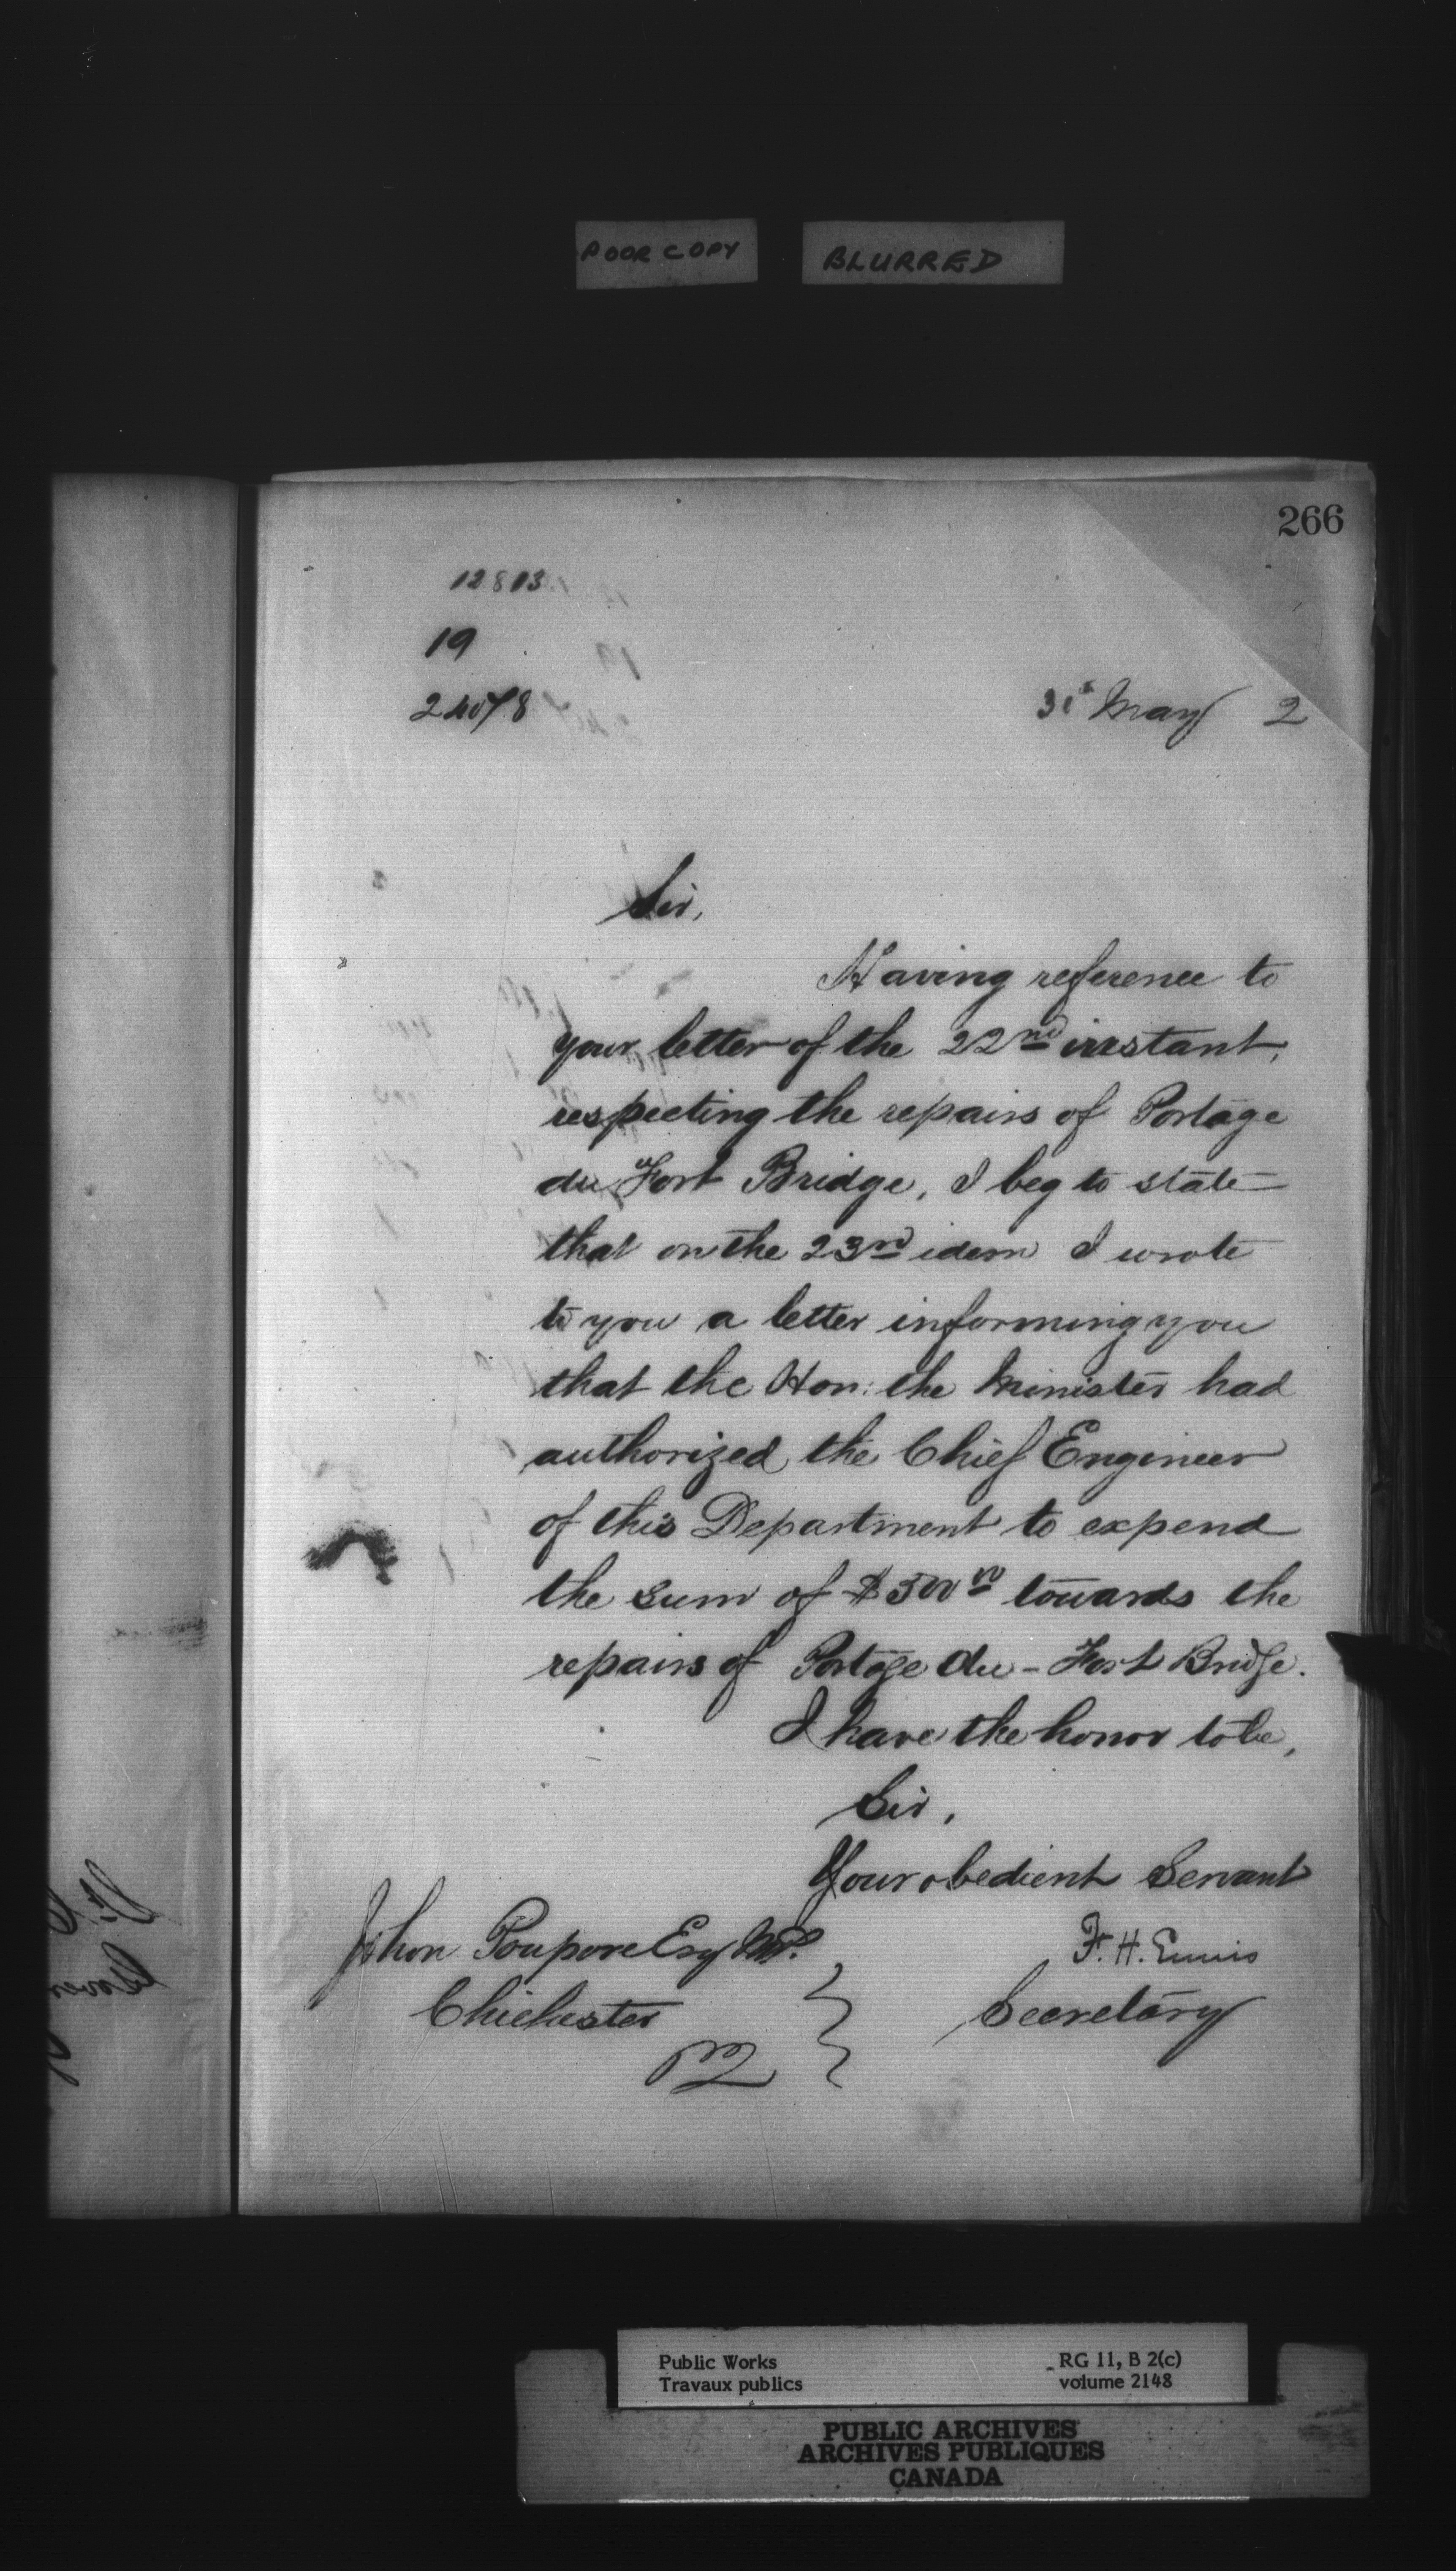 POOR COPY BLURRED
266
12813
19
31st May 2
Sir,
Having reference to
your letter of the 22nd instant,
respecting the repairs of Portage
du Fort Bridge, I beg to state
that on the 23rd idem I wrote
to you a letter informing you
that the Hon: the Minister had
authorized the Chief Engineer
of this Department to expend
the sum of $500 00 towards the
repairs of Portage du-Fort Bridge.
I have the honor to be,
Sir,
Your obedient Servant
John Poupore Esq M.P.
F. H. Ennis
Chichester
Secretary
PQ
Public Works
Travaux publics
RG 11, B 2(c)
volume 2148
PUBLIC ARCHIVES
ARCHIVES PUBLIQUES
CANADA